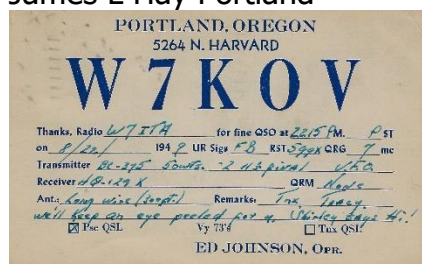 James E Hay Portland
PORTLAND, OREGON
5264 N. HARVARD
W7KOV
Thanks, Radio W7ITA for fine QSO at 2215 PM. PST
on 8/22/ 1949 UR Sigs FB RST 599X QRG 7 mc
Transmitter BC-375 50wts. V.F.O.
Receiver HQ-129X QRM Mods
Ant.: Long wire (300ft.) Remarks: Tnx, Tracy.
We'll keep an eye peeled for u. Shirley says Hi!
☒ Pse QSL Vy 73's ☐ Tnx QSL
ED JOHNSON, OPR.